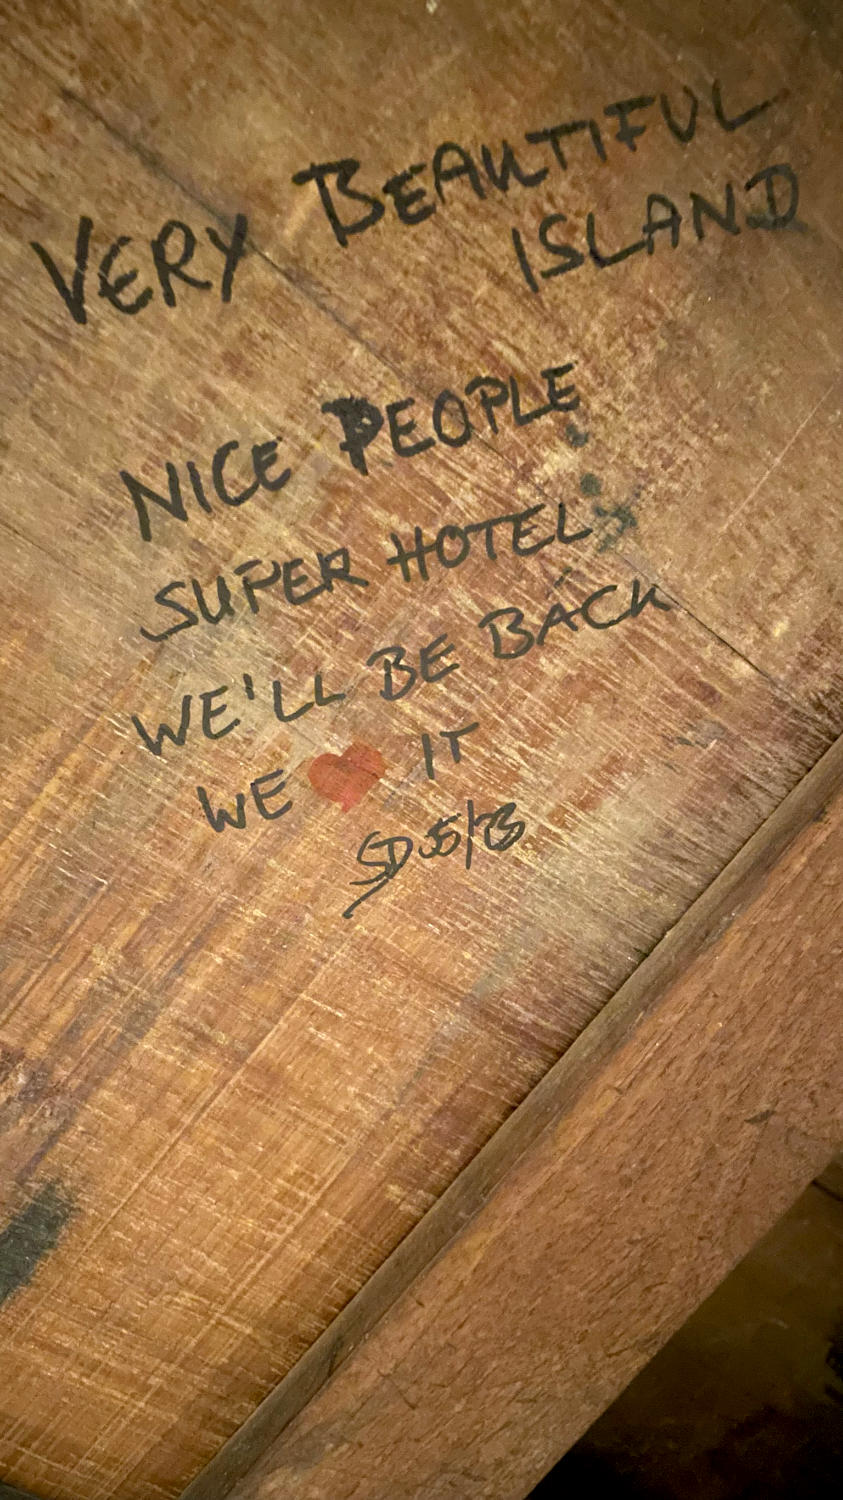 VERY BEAUTIFUL
ISLAND
NICE PEOPLE
SUPER HOTEL
WE'LL BE BACK
WE ❤ IT
SD 05/23